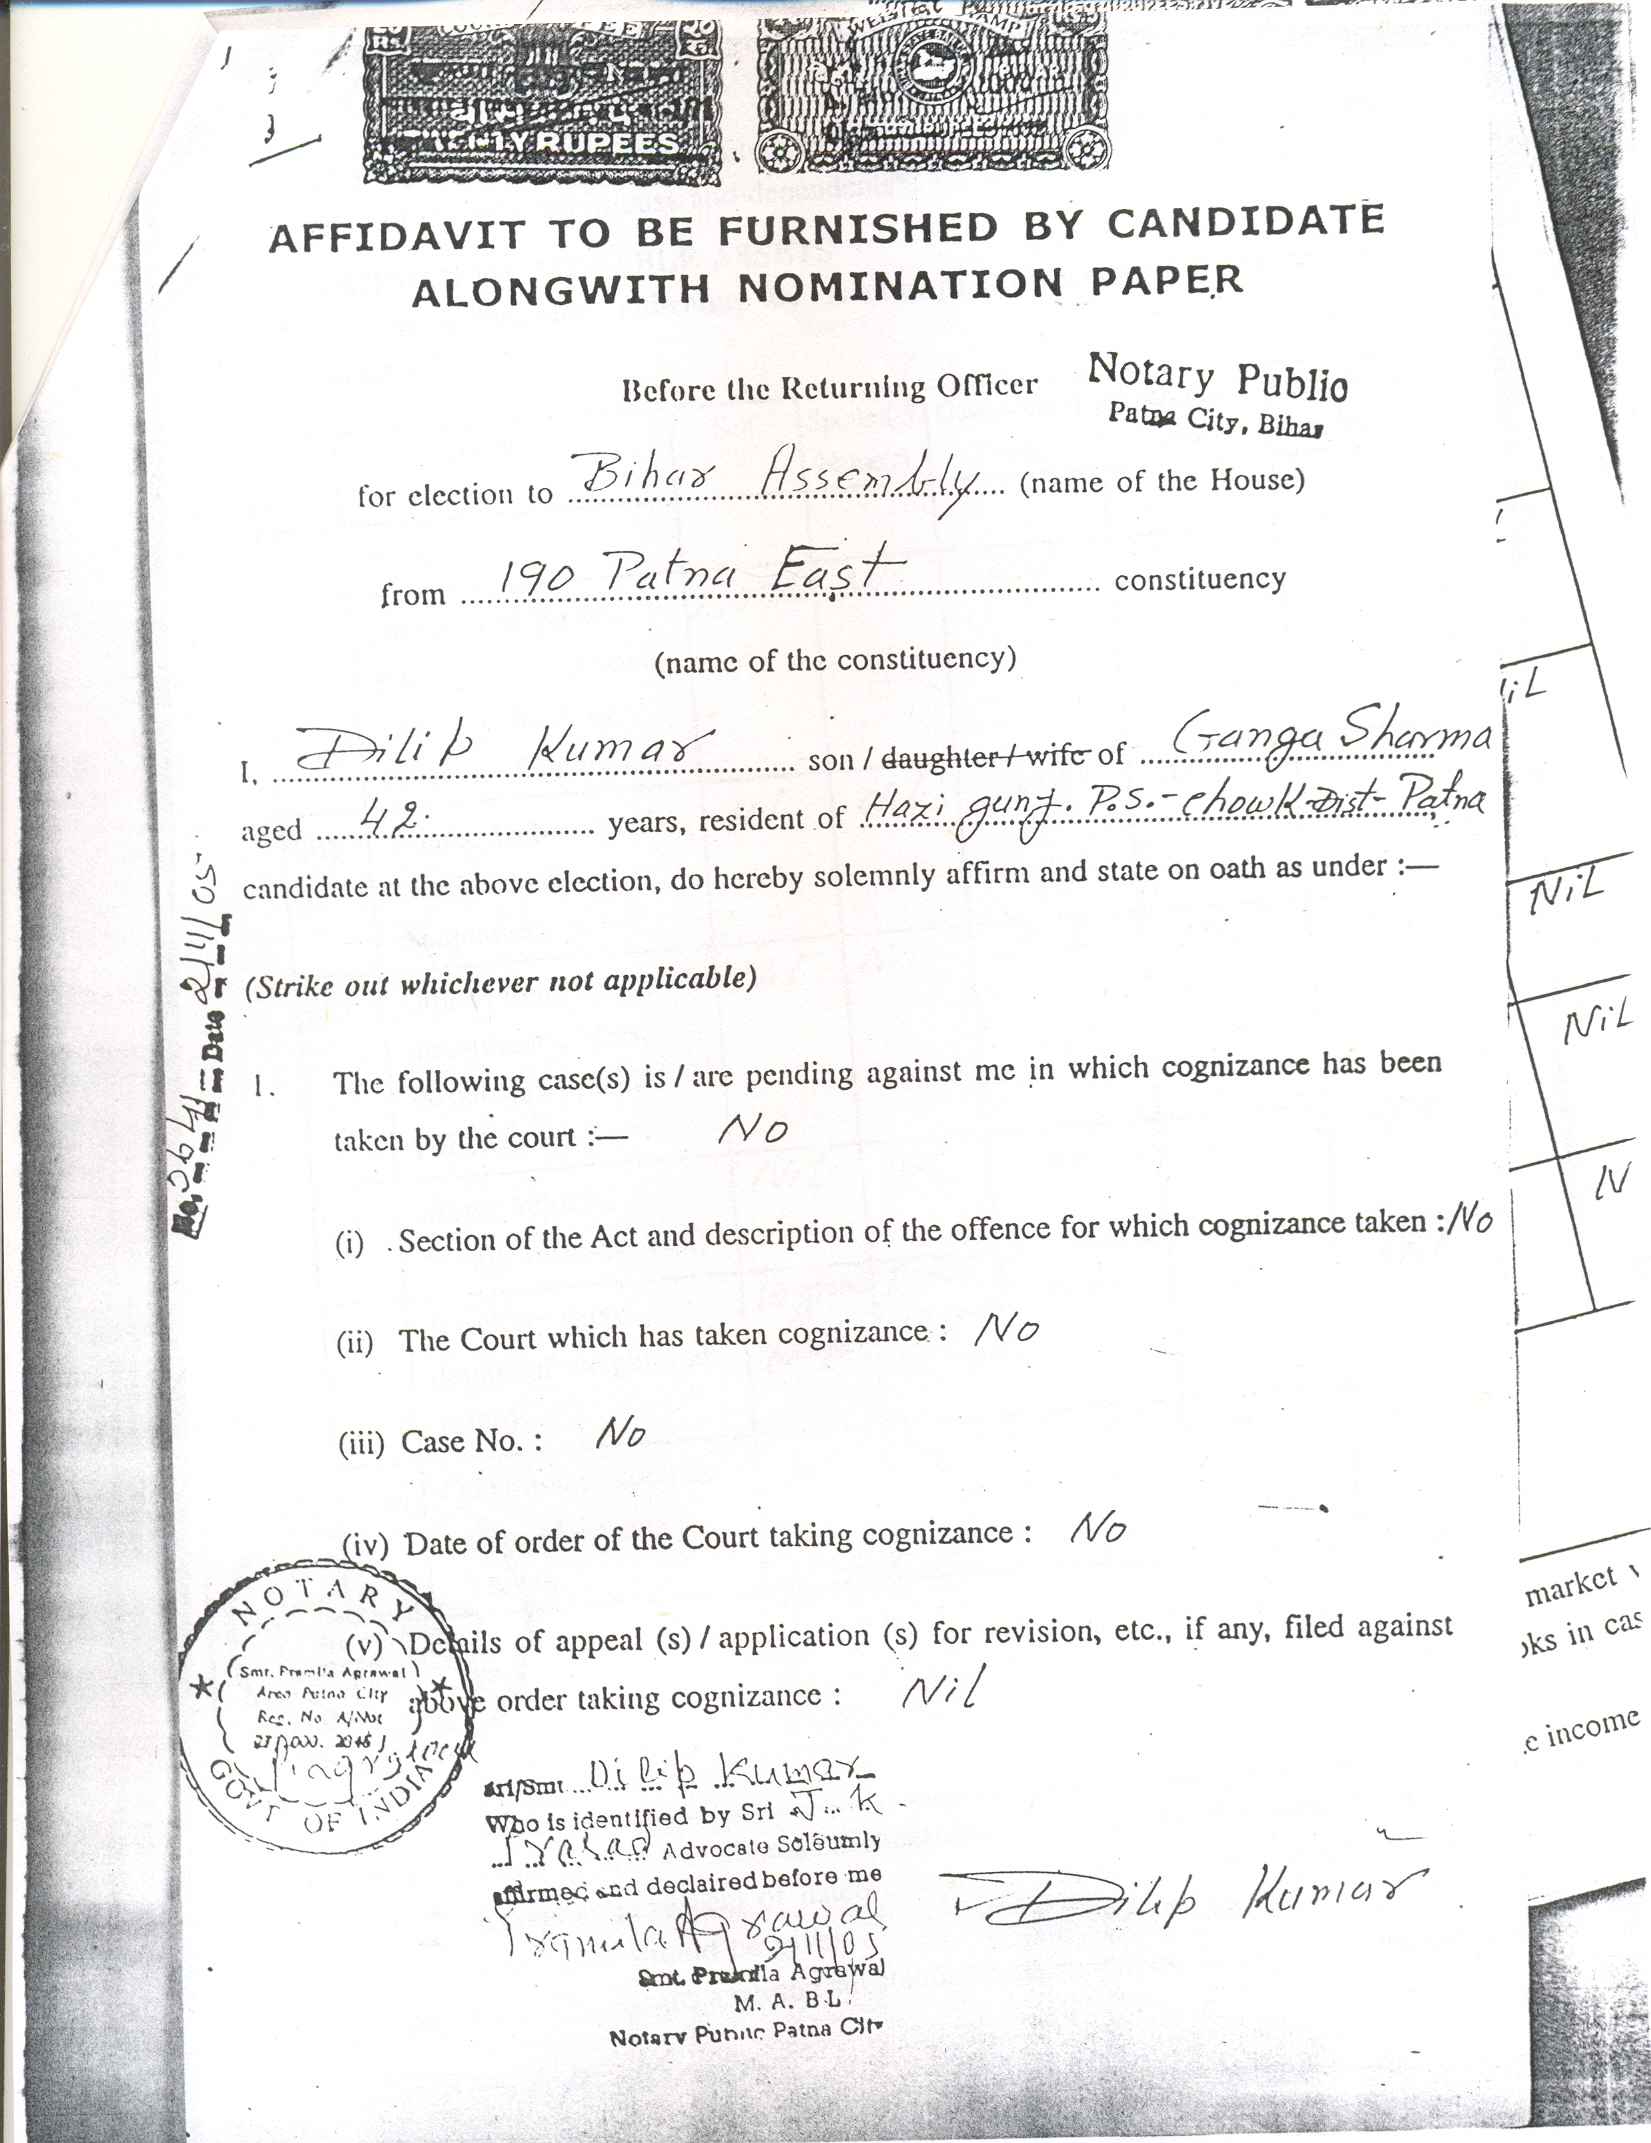 TWENTY RUPEES
AFFIDAVIT TO BE FURNISHED BY CANDIDATE
ALONGWITH NOMINATION PAPER
Before the Returning Officer
Notary Public
Patna City, Bihar
for election to Bihar Assembly (name of the House)
from 190 Patna East constituency
(name of the constituency)
I, Dilip Kumar son / daughter / wife of Ganga Sharma
aged 42 years, resident of Hazi gunj. P.S.- chowk Dist- Patna
candidate at the above election, do hereby solemnly affirm and state on oath as under :—
Date 2/11/05
(Strike out whichever not applicable)
1. The following case(s) is / are pending against me in which cognizance has been
taken by the court :— No
(i) Section of the Act and description of the offence for which cognizance taken : No
(ii) The Court which has taken cognizance : No
(iii) Case No. : No
(iv) Date of order of the Court taking cognizance : No
(v) Details of appeal (s) / application (s) for revision, etc., if any, filed against
above order taking cognizance : Nil
NOTARY
Smt. Pramila Agrawal
Area Patna City
Reg. No
GOVT OF INDIA
Sri/Smt Dilip Kumar
Who is identified by Sri J. K.
Prasad Advocate Soleumly
affirmed and declaired before me
Pramila Agrawal
2/11/05
Smt. Pramila Agrawal
M. A. B.L.
Notary Public Patna City
Dilip Kumar
Nil
Nil
Nil
market
oks in cas
e income